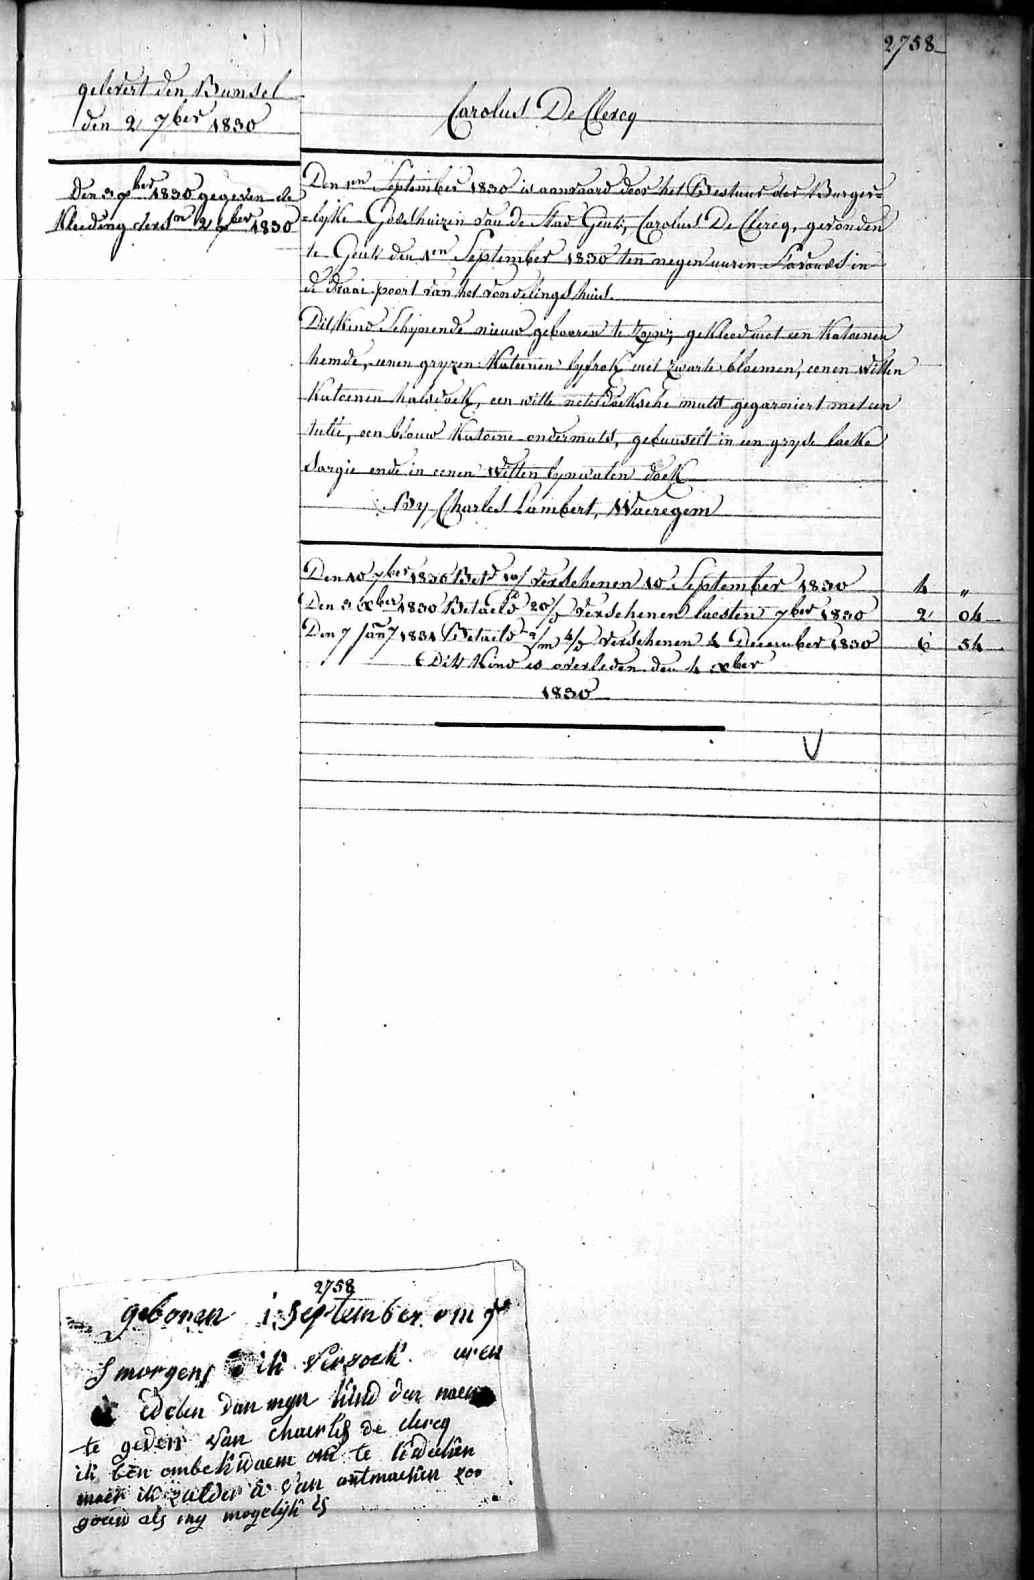 2758
gelevert den Bunsel
den 2 7ber 1830
Carolus De Clercq
Den 3 9ber 1830 gegeven de
Kleeding verst 2 9ber 1830
Den 1en September 1830 is aanvaard door het Bestuur der Burger=
=lyke Godshuizen van de Stad Gent, Carolus De Clercq, gevonden
te Gent den 1en September 1830 ten negen uuren S'avonds in
de draai poort van het vondelingshuis.
Dit Kind schynende nieuw gebooren te zyn; gekleed met een Katoenen
hemde, eenen gryzen Katoenen lyfrok met zwarte bloemen, eenen witten
Katoenen halsdoek, een witte neteldoeksche muts gegarniert met een
tulle, een blouw Katoene ondermuts, gebunselt in een gryse laeke
sargie ende in eenen witten lynwaten doek
By Charles Lambert, Waeregem
Den 10 7ber 1830 Bet verschenen 10 September 1830 4 „
Den 3 8ber 1830 Betaeld 20/ verschenen laesten 7ber 1830 2 04
Den 7 Jany 1831 Betaeld 2/m 4/ verschenen 4 December 1830 6 54
Dit Kind is overleden den 4 xber
1830
V
2758
geboren 1 September om 9
Smorgens ik versoek uren
edelen van myn kind den naem
te geven van Chaerles de clercq
ik ben ombekwaem om te kweeken
maer ik zalder u van ontmaeken zoo
gouw als my mogelyk is